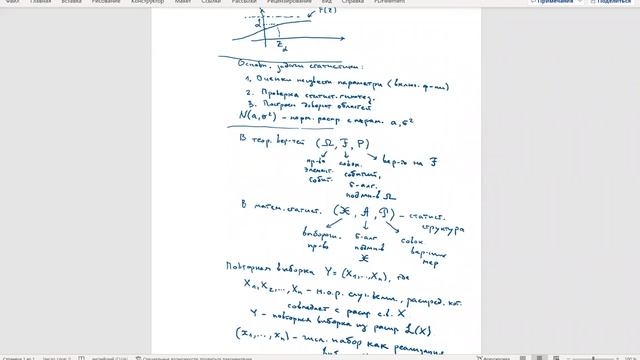 Файл Главная Вставка Рисование Конструктор Макет Ссылки Рассылки Рецензирование Вид Справка PDFelement
Примечания
F(z)
α
z_α
Основн. задачи статистики:
1. Оценки неизвестн параметри (включ. ф-ии)
2. Проверка статист. гипотез.
3. Построен доверит областей
N(a, σ²) – норм. распр с парам. a, σ²
В теор. вер-тей (Ω, F, P)
пр-во элемент. событ.
совок. событий, σ-алг. подмн-в Ω
вер-ть на F
В матем. статист. (X, A, P) – статист. структура
выбороч. пр-во
σ-алг подмн-в X
совок вер-ных мер
Повторная выборка Y = (X₁, ..., Xₙ), где
X₁, X₂, ..., Xₙ – н.о.р. случ. велич., распред. кот.
совпадает с распр с.в. X
Y – повторная выборка из распр L(X)
(x₁, ..., xₙ) – числ. набор как реализация